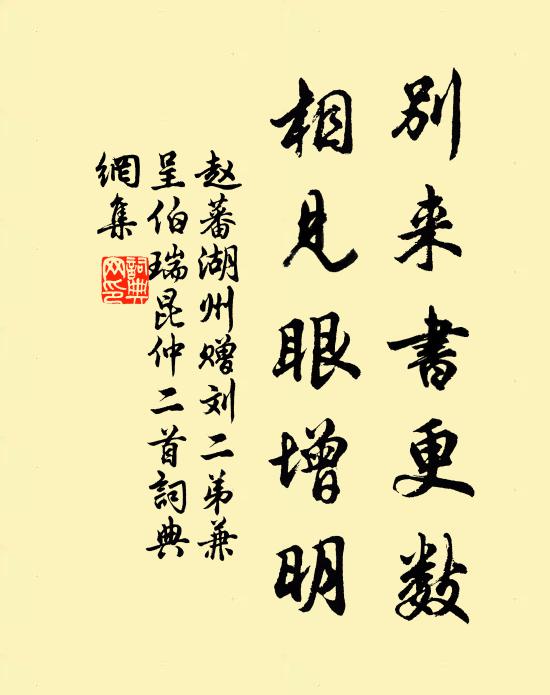 别来书更数
相见眼增明
赵蕃湖州赠刘二弟兼
呈伯瑞昆仲二首詞典
網集
詞典
网印